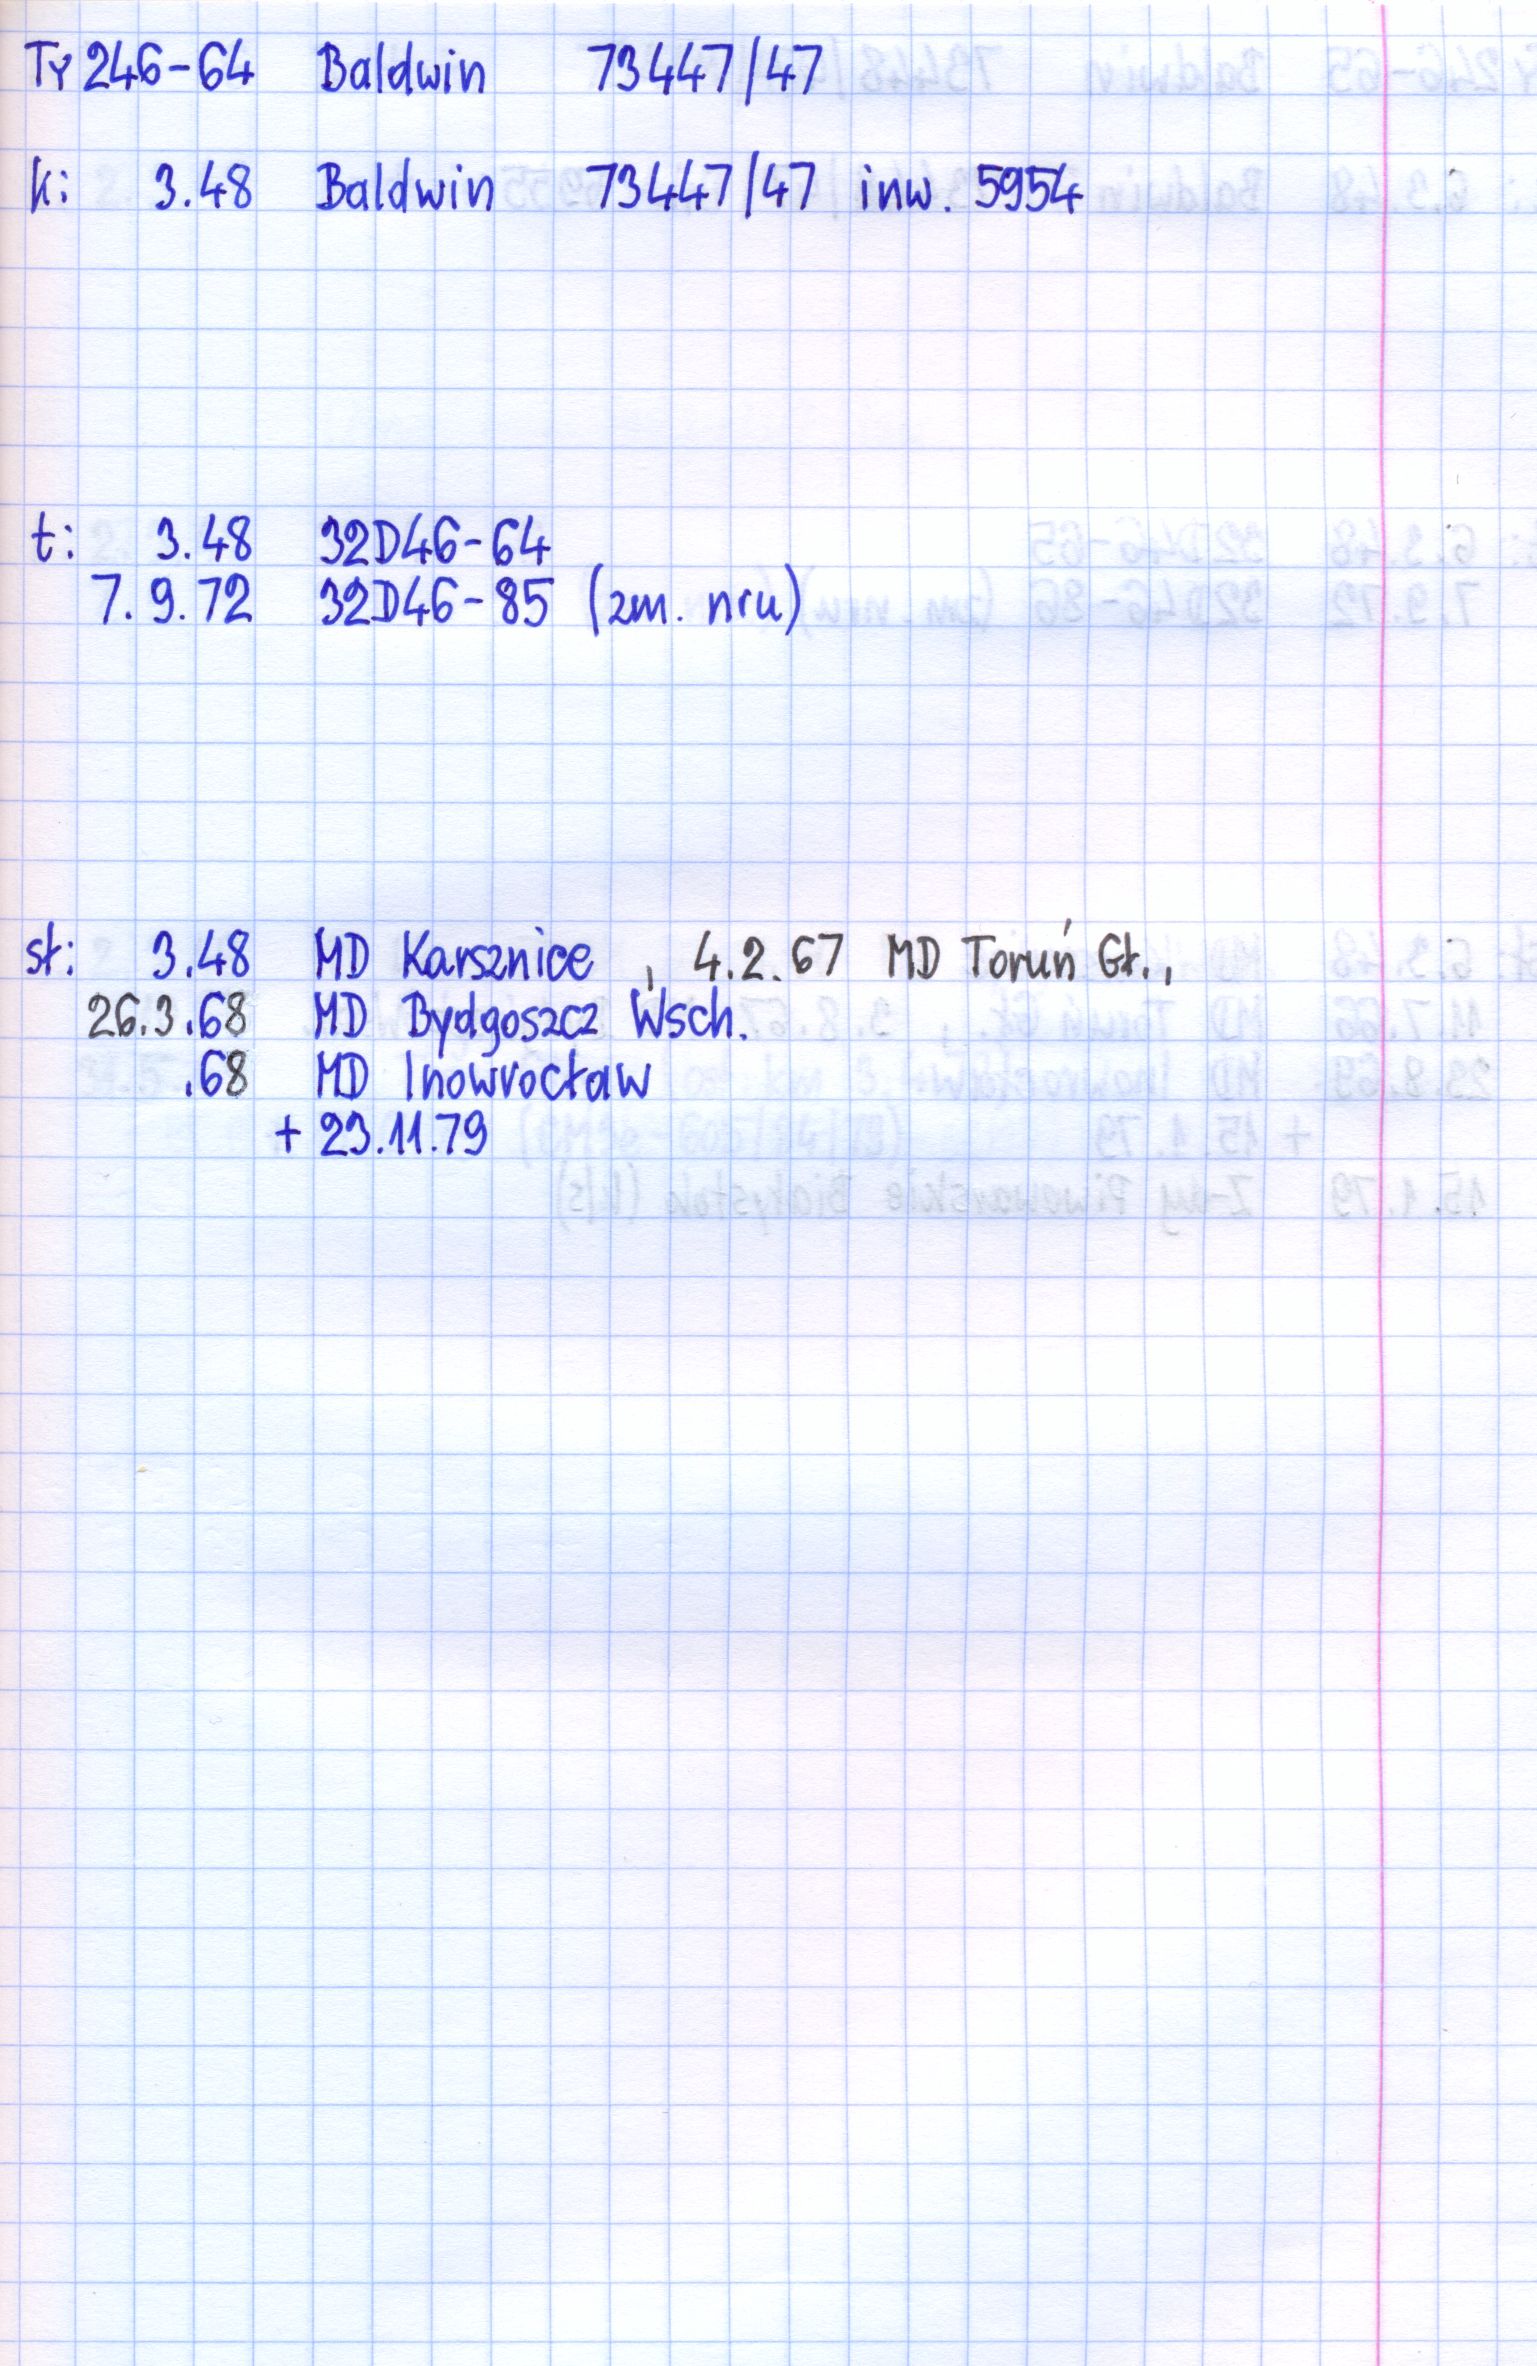 Ty 246-64 Baldwin 73447/47
k: 3.48 Baldwin 73447/47 inw. 5954
t: 3.48 32D46-64
7.9.72 32D46-85 (zm. nru)
st: 3.48 MD Karsznice , 4.2.67 MD Toruń Gł.,
26.3.68 MD Bydgoszcz Wsch.
.68 MD Inowrocław
+ 23.11.79